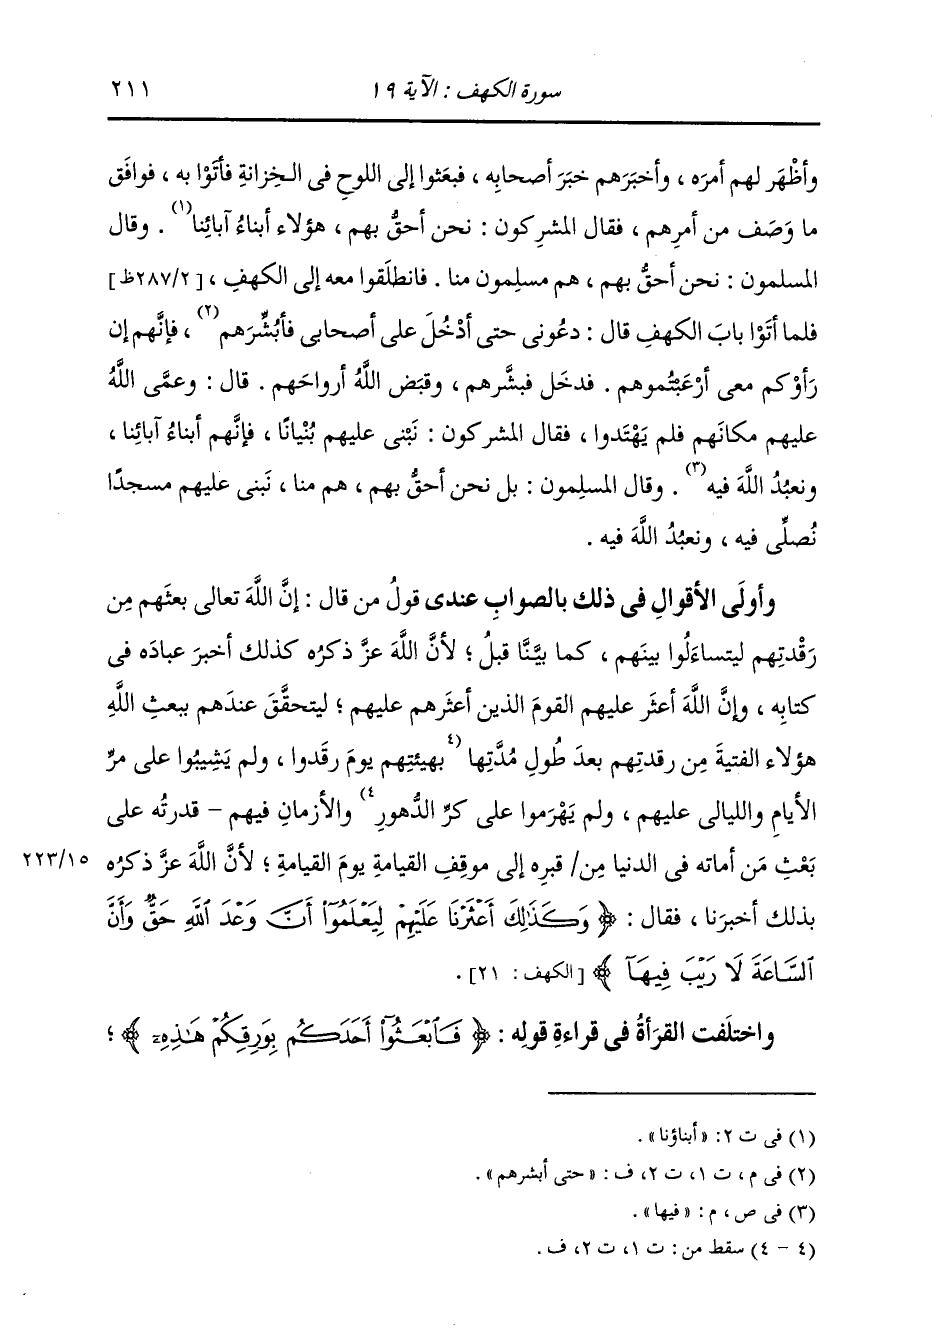 سورة الكهف : الآية ١٩
٢١١
وأظْهَر لهم أمرَه ، وأخبَرَهم خبَرَ أصحابِه ، فبعَثوا إلى اللوحِ فى الخِزانةِ فأتَوْا به ، فوافَق
ما وَصَف من أمرِهم ، فقال المشرِكون : نحن أحقُّ بهم ، هؤلاء أبناءُ آبائِنا(١) . وقال
المسلمون : نحن أحقُّ بهم ، هم مسلِمون منا . فانطلَقوا معه إلى الكهفِ ، [٢٨٧/٢ظ]
فلما أتَوْا بابَ الكهفِ قال : دعُونى حتى أدْخُلَ على أصحابى فأبُشِّرَهم(٢) ، فإنَّهم إن
رَأوْكم معى أرْعَبْتُموهم . فدخَل فبشَّرهم ، وقبَض اللَّهُ أرواحَهم . قال : وعمَّى اللَّهُ
عليهم مكانَهم فلم يَهْتَدوا ، فقال المشركون : نَبْنى عليهم بُنْيانًا ، فإنَّهم أبناءُ آبائِنا ،
ونعبُدُ اللَّهَ فيه(٣) . وقال المسلِمون : بل نحن أحقُّ بهم ، هم منا ، نَبنى عليهم مسجدًا
نُصلِّى فيه ، ونعبُدُ اللَّهَ فيه .
وأولَى الأقوالِ فى ذلك بالصوابِ عندى قولُ من قال : إنَّ اللَّهَ تعالى بعثَهم مِن
رَقْدتِهم ليتساءَلُوا بينَهم ، كما بيَّنَّا قبلُ ؛ لأنَّ اللَّهَ عزَّ ذكرُه كذلك أخبرَ عبادَه فى
كتابِه ، وإنَّ اللَّهَ أعثَر عليهم القومَ الذين أعثَرهم عليهم ؛ ليتحقَّقَ عندَهم ببعثِ اللَّهِ
هؤلاء الفتيةَ مِن رقدتِهم بعدَ طُولِ مُدَّتِها (٤بهيئتِهم يومَ رقَدوا ، ولم يَشِيبُوا على مرِّ
الأيامِ والليالى عليهم ، ولم يَهْرَموا على كرِّ الدُّهورِ٤) والأزمانِ فيهم – قدرتُه على
بَعْثِ مَن أماته فى الدنيا مِن/ قبرِه إلى موقِفِ القيامةِ يومَ القيامةِ ؛ لأنَّ اللَّهَ عزَّ ذكرُه
٢٢٣/١٥
بذلك أخبرَنا ، فقال : ﴿ وَكَذَٰلِكَ أَعْثَرْنَا عَلَيْهِمْ لِيَعْلَمُوٓا۟ أَنَّ وَعْدَ ٱللَّهِ حَقٌّ وَأَنَّ
ٱلسَّاعَةَ لَا رَيْبَ فِيهَآ ﴾ [الكهف : ٢١] .
واختلَفت القرَأةُ فى قراءةِ قولِه : ﴿ فَٱبْعَثُوٓا۟ أَحَدَكُم بِوَرِقِكُمْ هَٰذِهِۦٓ ﴾ ؛
(١) فى ت ٢: «أبناؤنا» .
(٢) فى م، ت ١، ت ٢، ف : «حتى أبشرهم» .
(٣) فى ص ، م : «فيها» .
(٤ - ٤) سقط من : ت ١، ت ٢، ف .